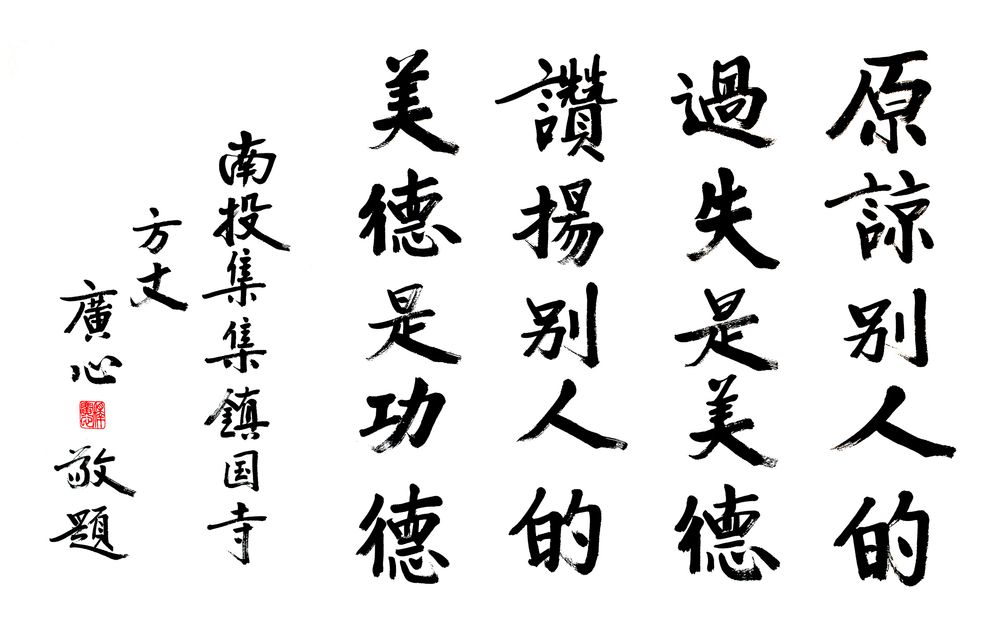 原諒別人的
過失是美德
讚揚別人的
美德是功德
南投集集鎮国寺
方丈
廣心
敬題